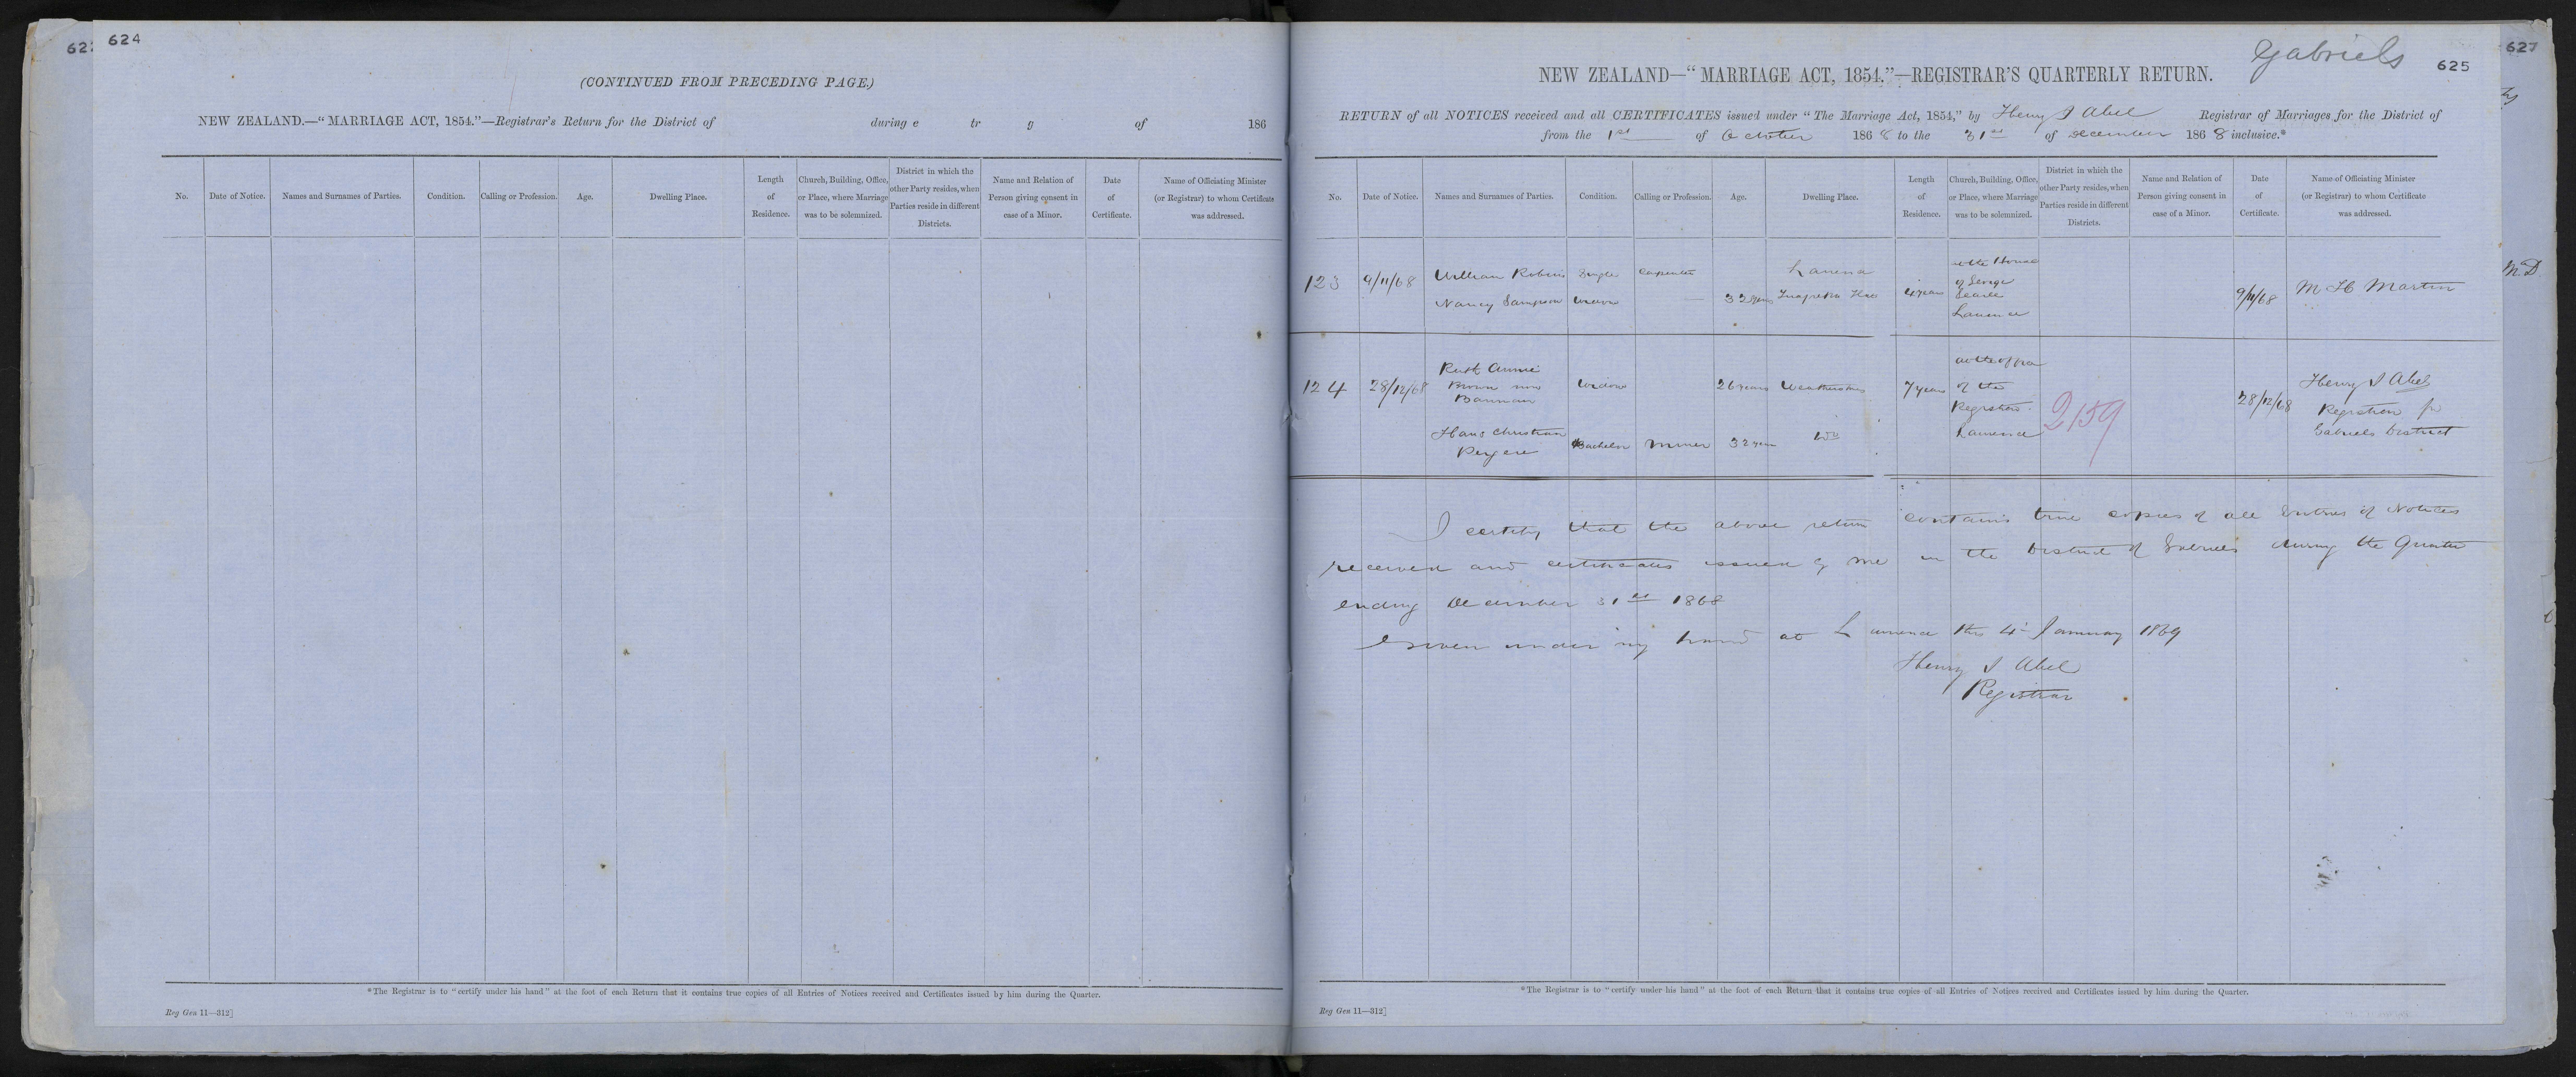 624
(CONTINUED FROM PRECEDING PAGE.)
NEW ZEALAND.—"MARRIAGE ACT, 1854."—Registrar's Return for the District of during e tr g of 186
No. Date of Notice. Names and Surnames of Parties. Condition. Calling or Profession. Age. Dwelling Place. Length of Residence. Church, Building, Office, or Place, where Marriage was to be solemnized. District in which the other Party resides, when Parties reside in different Districts. Name and Relation of Person giving consent in case of a Minor. Date of Certificate. Name of Officiating Minister (or Registrar) to whom Certificate was addressed.
*The Registrar is to "certify under his hand" at the foot of each Return that it contains true copies of all Entries of Notices received and Certificates issued by him during the Quarter.
Reg Gen 11—312]
Gabriels
625
627
NEW ZEALAND—"MARRIAGE ACT, 1854."—REGISTRAR'S QUARTERLY RETURN.
RETURN of all NOTICES received and all CERTIFICATES issued under "The Marriage Act, 1854," by Henry J Abel Registrar of Marriages for the District of
from the 1st of October 1868 to the 31st of December 1868 inclusive.*
No. Date of Notice. Names and Surnames of Parties. Condition. Calling or Profession. Age. Dwelling Place. Length of Residence. Church, Building, Office, or Place, where Marriage was to be solemnized. District in which the other Party resides, when Parties reside in different Districts. Name and Relation of Person giving consent in case of a Minor. Date of Certificate. Name of Officiating Minister (or Registrar) to whom Certificate was addressed.
123 9/11/68 William Robins Single Carpenter Lawrence
Nancy Sampson Widow — 32 years 4 years
at the House
of George
Searle
Lawrence
9/11/68 M H Martin
124 28/12/68 Ruth Annie
Brown now
Bannan
Widow 26 years Weatherstones 7 years
at the office
of the
Registrar
Lawrence
2159
28/12/68 Henry J Abel
Registrar for
Gabriels District
Hans Christian
Bachelor Miner 32 years
I certify that the above return contains true copies of all Entries of Notices
received and certificates issued by me in the District of Gabriels during the Quarter
ending December 31st 1868
Given under my hand at Lawrence this 4th January 1869
Henry J Abel
Registrar
*The Registrar is to "certify under his hand" at the foot of each Return that it contains true copies of all Entries of Notices received and Certificates issued by him during the Quarter.
Reg Gen 11—312]